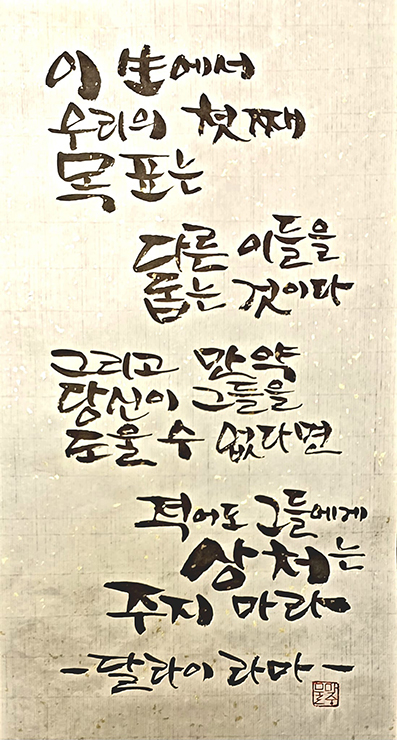 이 生에서
우리의 첫째
목표는
다른 이들을
돕는 것이다
그리고 만약
당신이 그들을
도울 수 없다면
적어도 그들에게
상처는
주지 마라
-달라이 라마-